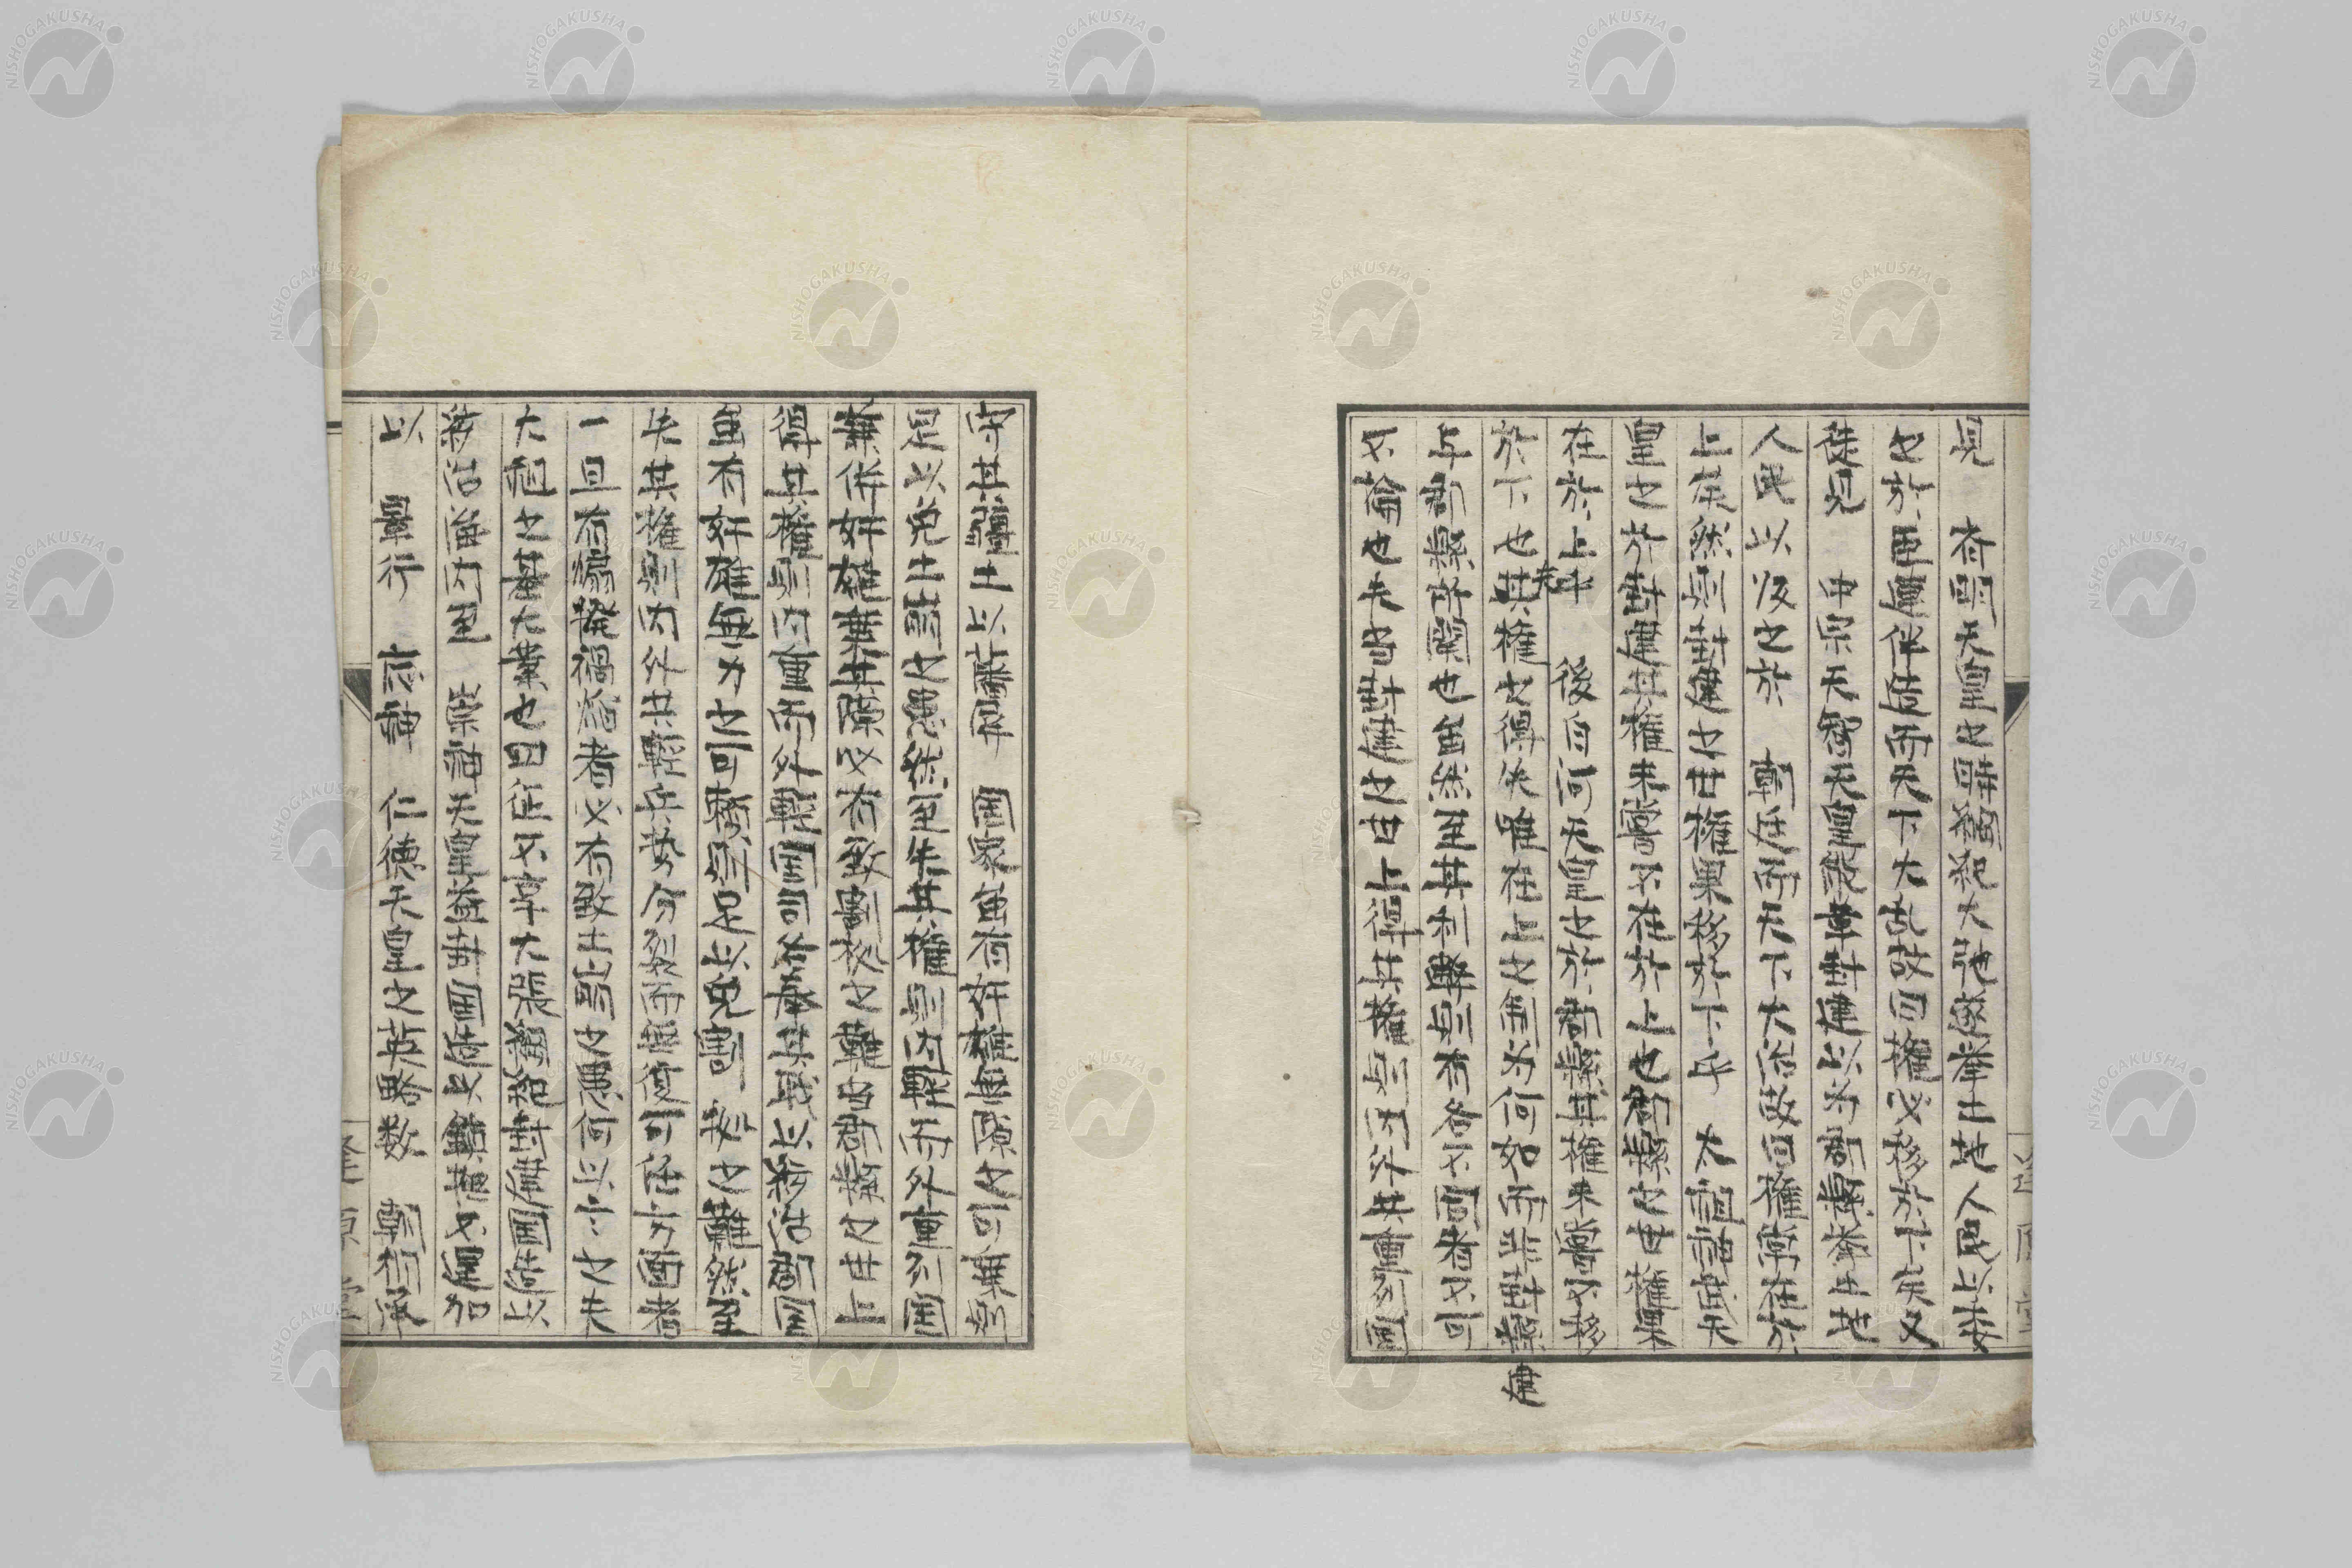 見 者明天皇之時蘇我大臣蝦夷挙土地人民以
也於函遽作造而天下大乱故曰権又移於下矣又
徒見 中宗天智天皇廃封建以為郡縣挙土地
人民以収之於 朝廷而天下大治故曰権常在於
上矣然則封建之世権果移於下乎 太祖神武天
皇之於封建其権未嘗不在於上也郡縣之世権果
在於上乎 後白河天皇之於郡縣其権未嘗不移
於下也夫其権之得失唯在上之制為何如而非封縣建
与郡縣所関也虽然至其利弊則有各不同者不可
不論也夫昔封建之世上得其権則内外共重列国
守其疆土以藩屏 国家虽有奸権無隙之可乗則
足以免土崩之患然至失其権則内軽而外重列国
兼併奸雄乗其隙必有致割拠之難由郡縣之世上
得其権則内重而外軽国司各奉其職以務治郡国
虽有奸雄無力之可頼則足以免割 拠之難然至
失其権則内外共軽兵勢分裂而無復可任方面者
一旦有煽発禍端者必有致土崩之患何以言之夫
太祖之基大業也四征不享大張綱紀封建国造以
務治海内至 崇神天皇益封国造以鎮撫不逞加
以 景行 応神 仁德天皇之英略数 朝相承